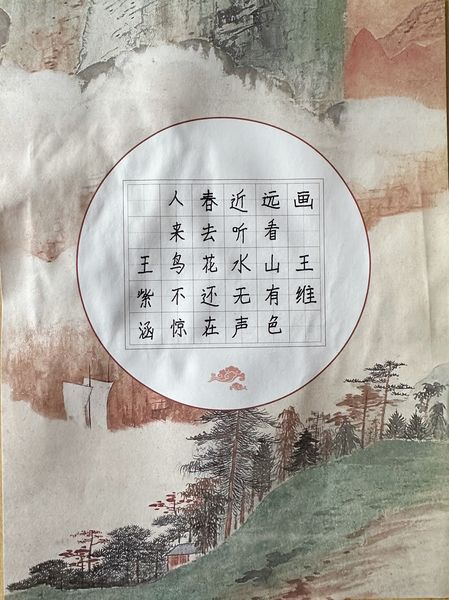 画 王维
远看山有色
近听水无声
春去花还在
人来鸟不惊
王紫涵